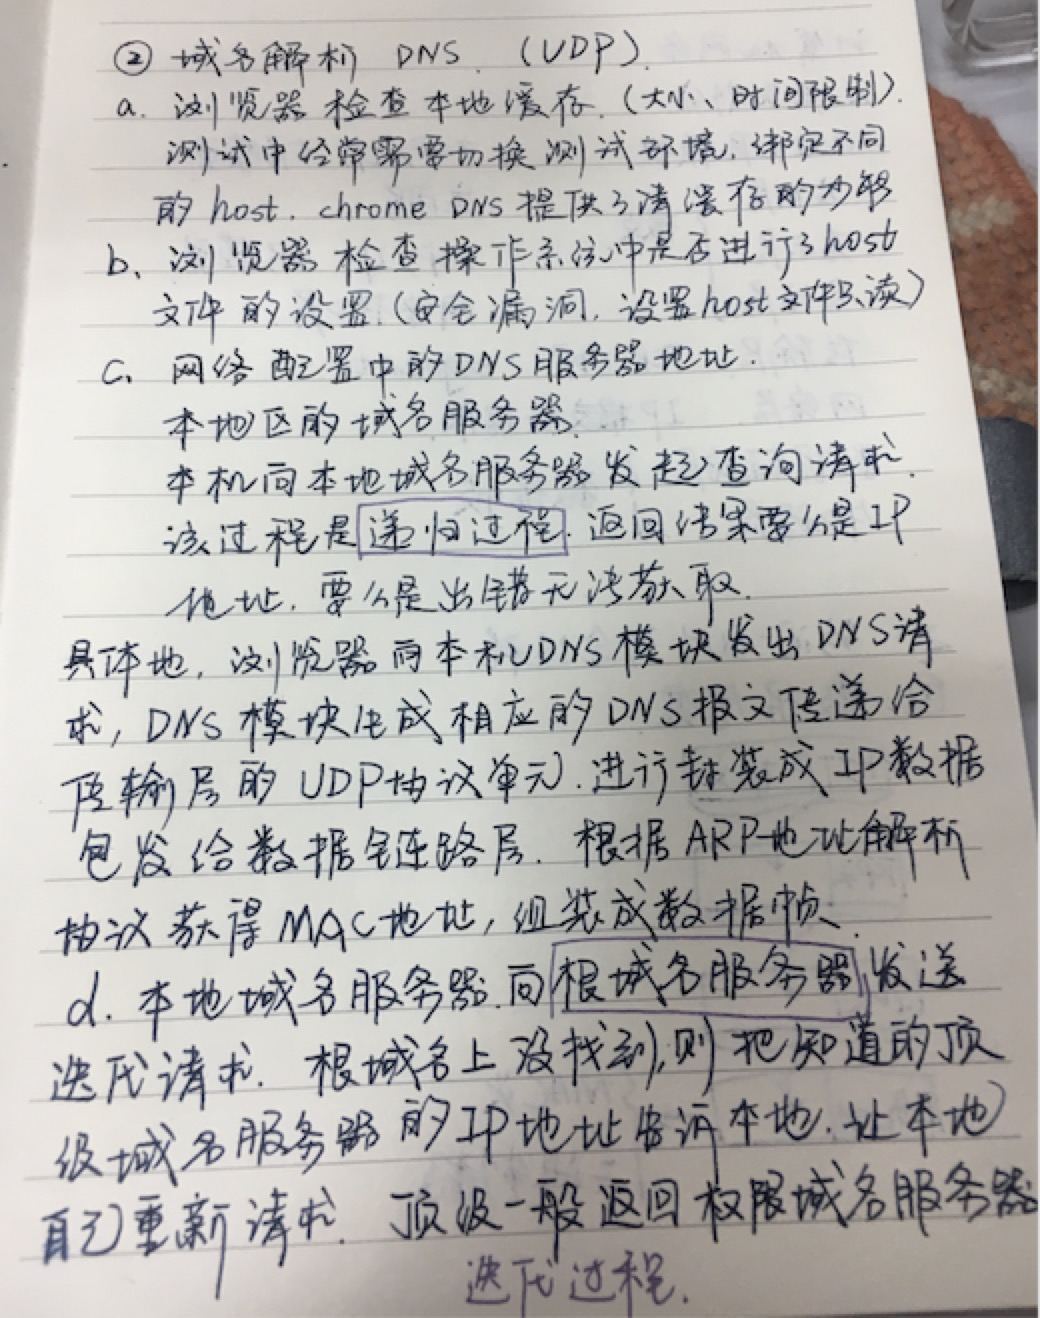 ② 域名解析 DNS. (UDP).
a. 浏览器检查本地缓存.(大小、时间限制).
测试中经常需要切换测试环境,绑定不同
的host. chrome DNS提供了清缓存的功能
b、浏览器检查操作系统中是否进行了host
文件的设置.(安全漏洞.设置host文件只读)
c、网络配置中的DNS服务器地址.
本地区的域名服务器.
本机向本地域名服务器发起查询请求.
该过程是递归过程.返回结果要么是IP
地址.要么是出错无法获取.
具体地,浏览器向本机DNS模块发出DNS请
求,DNS模块生成相应的DNS报文传递给
传输层的UDP协议单元.进行封装成IP数据
包发给数据链路层.根据ARP地址解析
协议获得MAC地址,组装成数据帧、
d.本地域名服务器.向根域名服务器发送
迭代请求.根域名上没找到,则把知道的顶
级域名服务器的IP地址告诉本地.让本地
自己重新请求.顶级一般返回权限域名服务器
迭代过程.